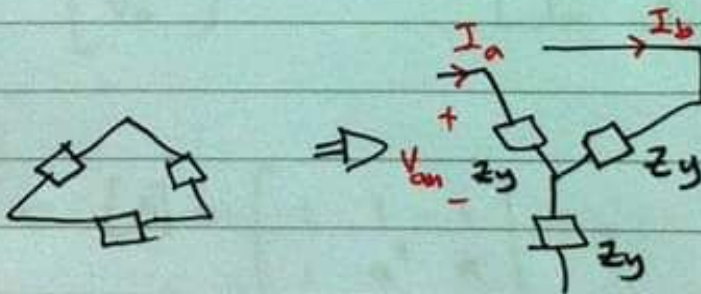 I_a
I_b
+
V_an
-
Zy
Zy
Zy